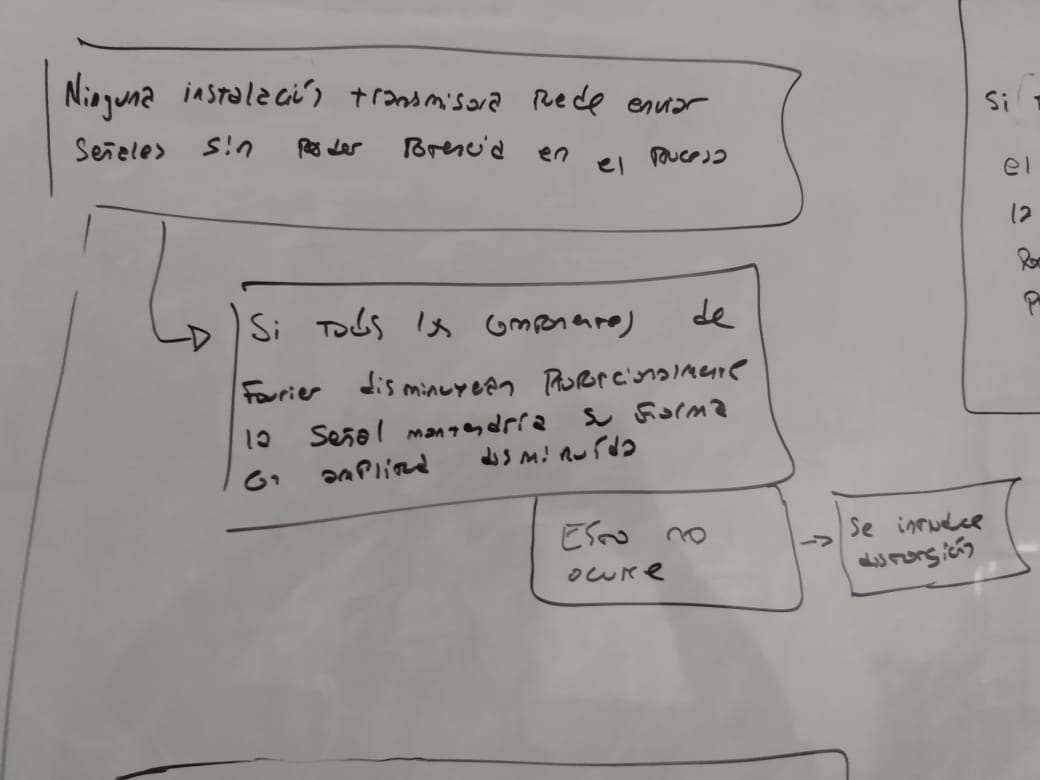 Ninguna instalación transmisora Puede enviar
Señales sin Perder Potencia en el Proceso
Si Todos los componentes de
Fourier disminuyeran Proporcionalmente
la Señal mantendría su Forma
con amplitud disminuida
Esto no
ocurre
Se introduce
distorsión
Si
el
la